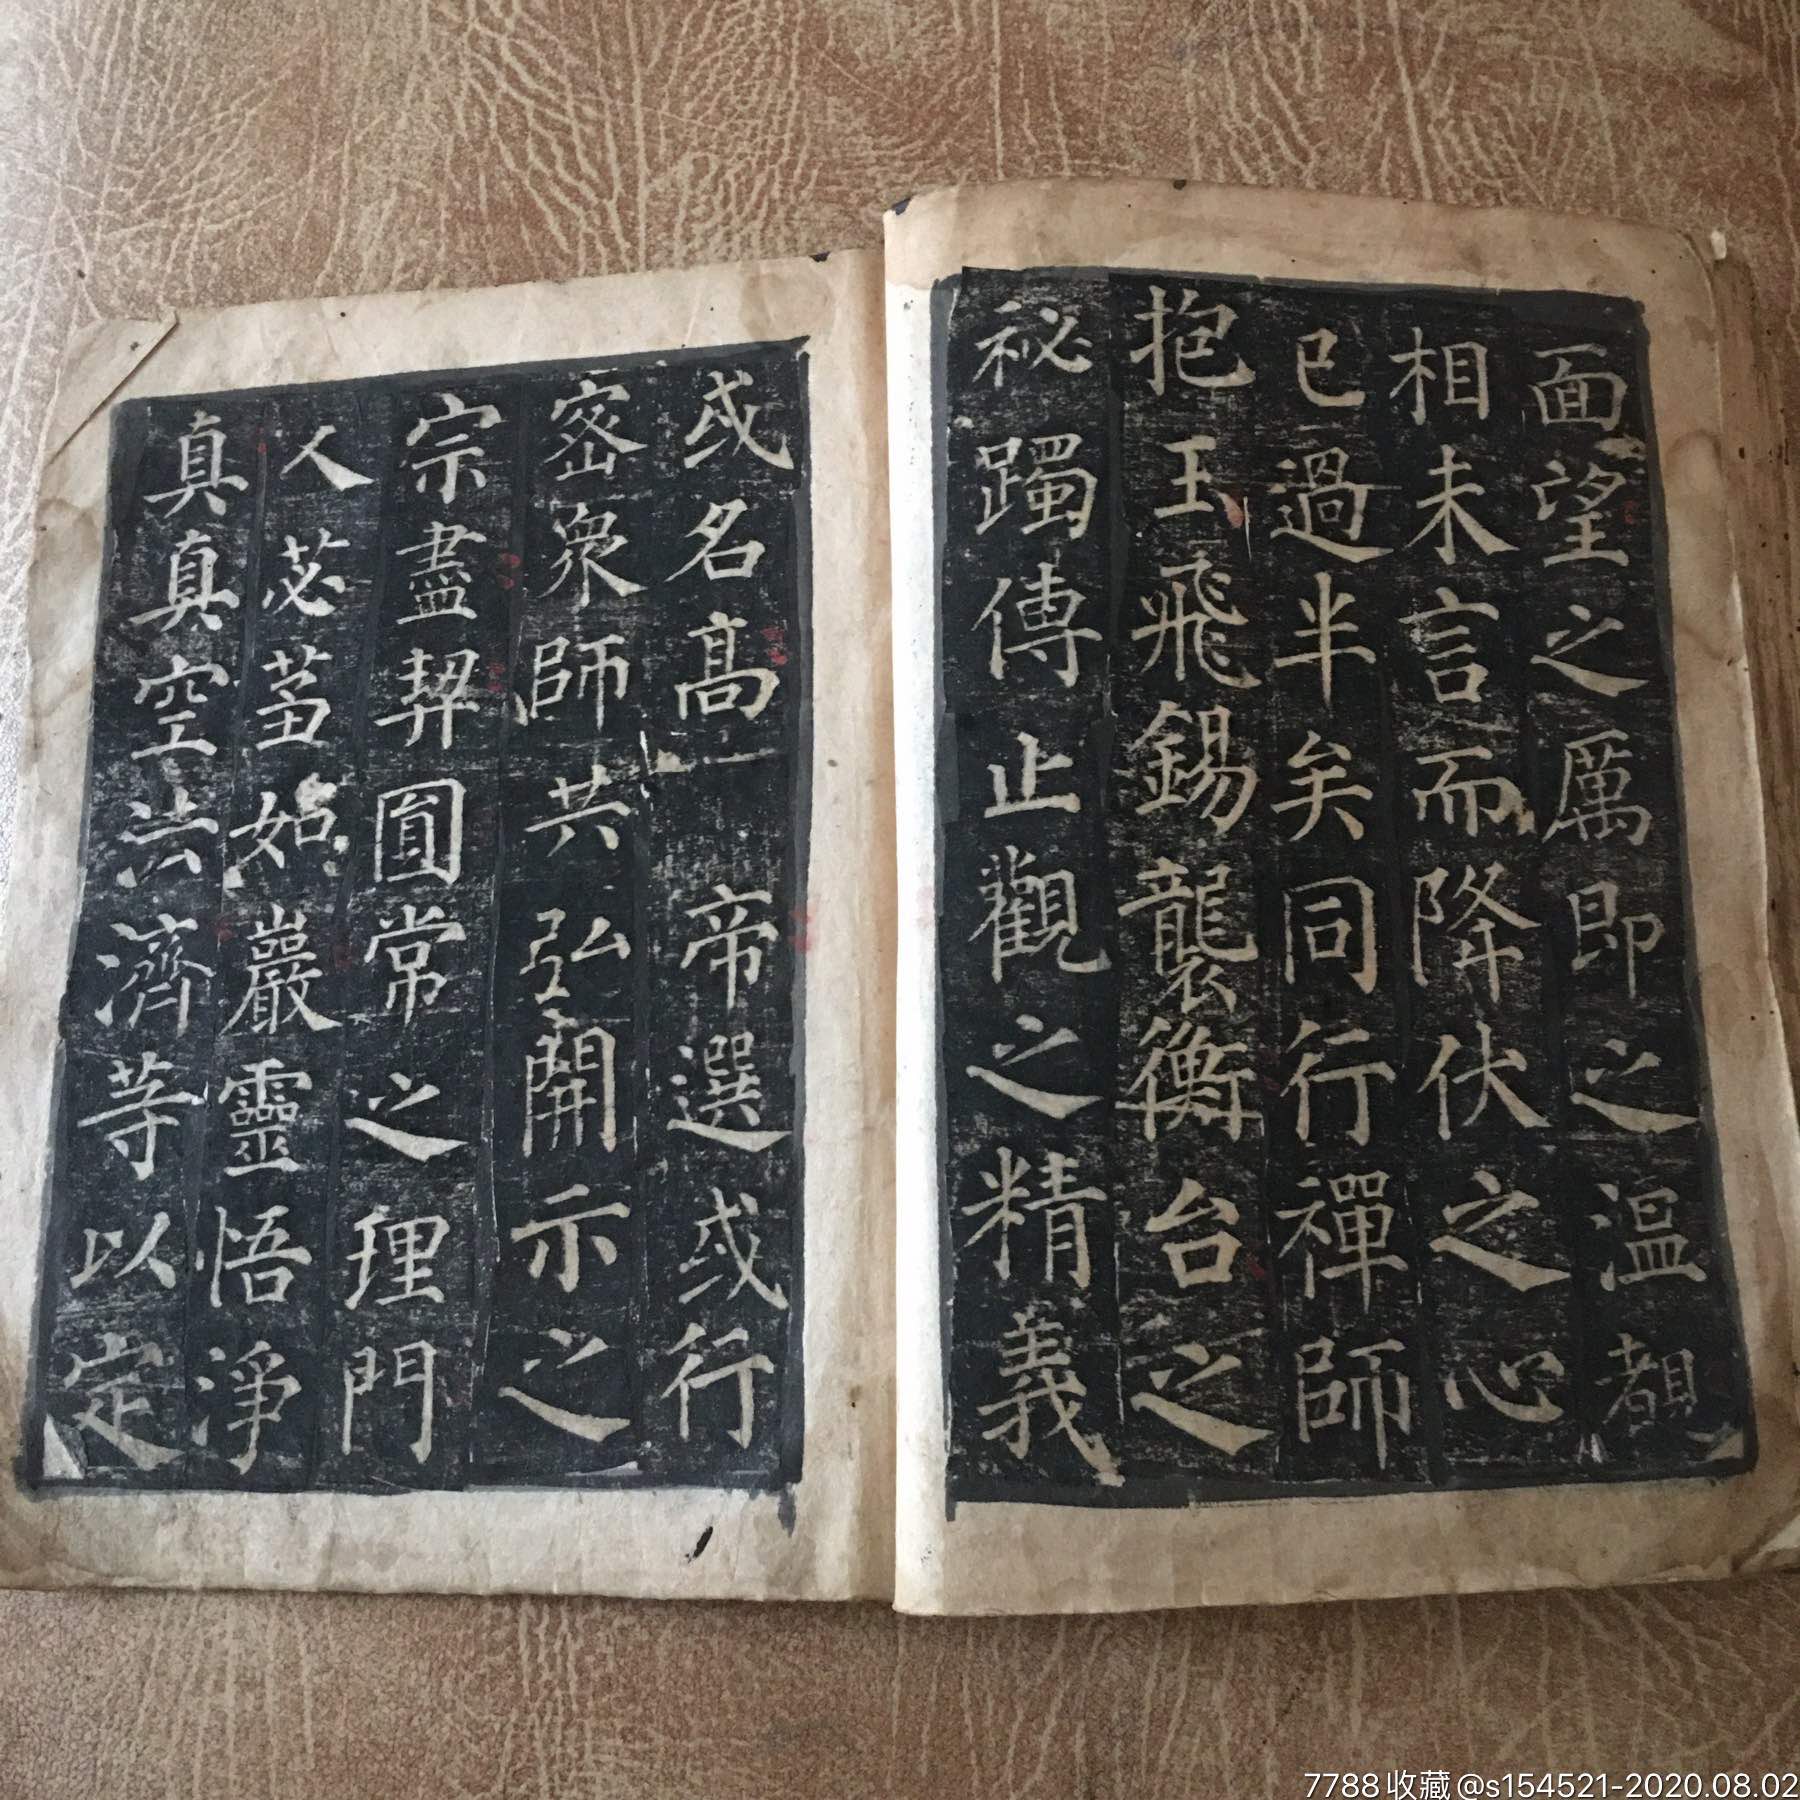 面望之厲即之温覩
相未言而降伏之心
已過半矣同行禪師
抱玉飛錫襲衡台之
祕躅傳止觀之精義
或名髙帝選或行
密衆師共弘開示之
宗盡契圓常之理門
人苾芻如巖靈悟淨
真真空法濟等以定
7788收藏@s154521-2020.08.02